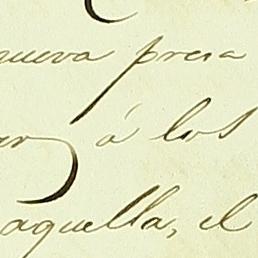 nueva presa
á los
aquella, el